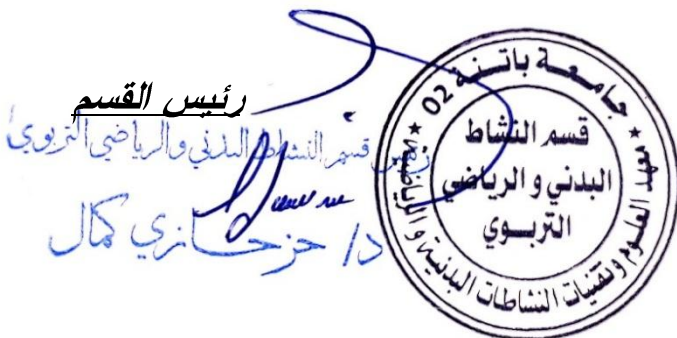 رئيس القسم
رئيس قسم النشاط البدني والرياضي التربوي
د/ حزحازي كمال
جامعة باتنة 02
معهد العلوم وتقنيات النشاطات البدنية و الرياضية
قسم النشاط
البدني و الرياضي
التربوي